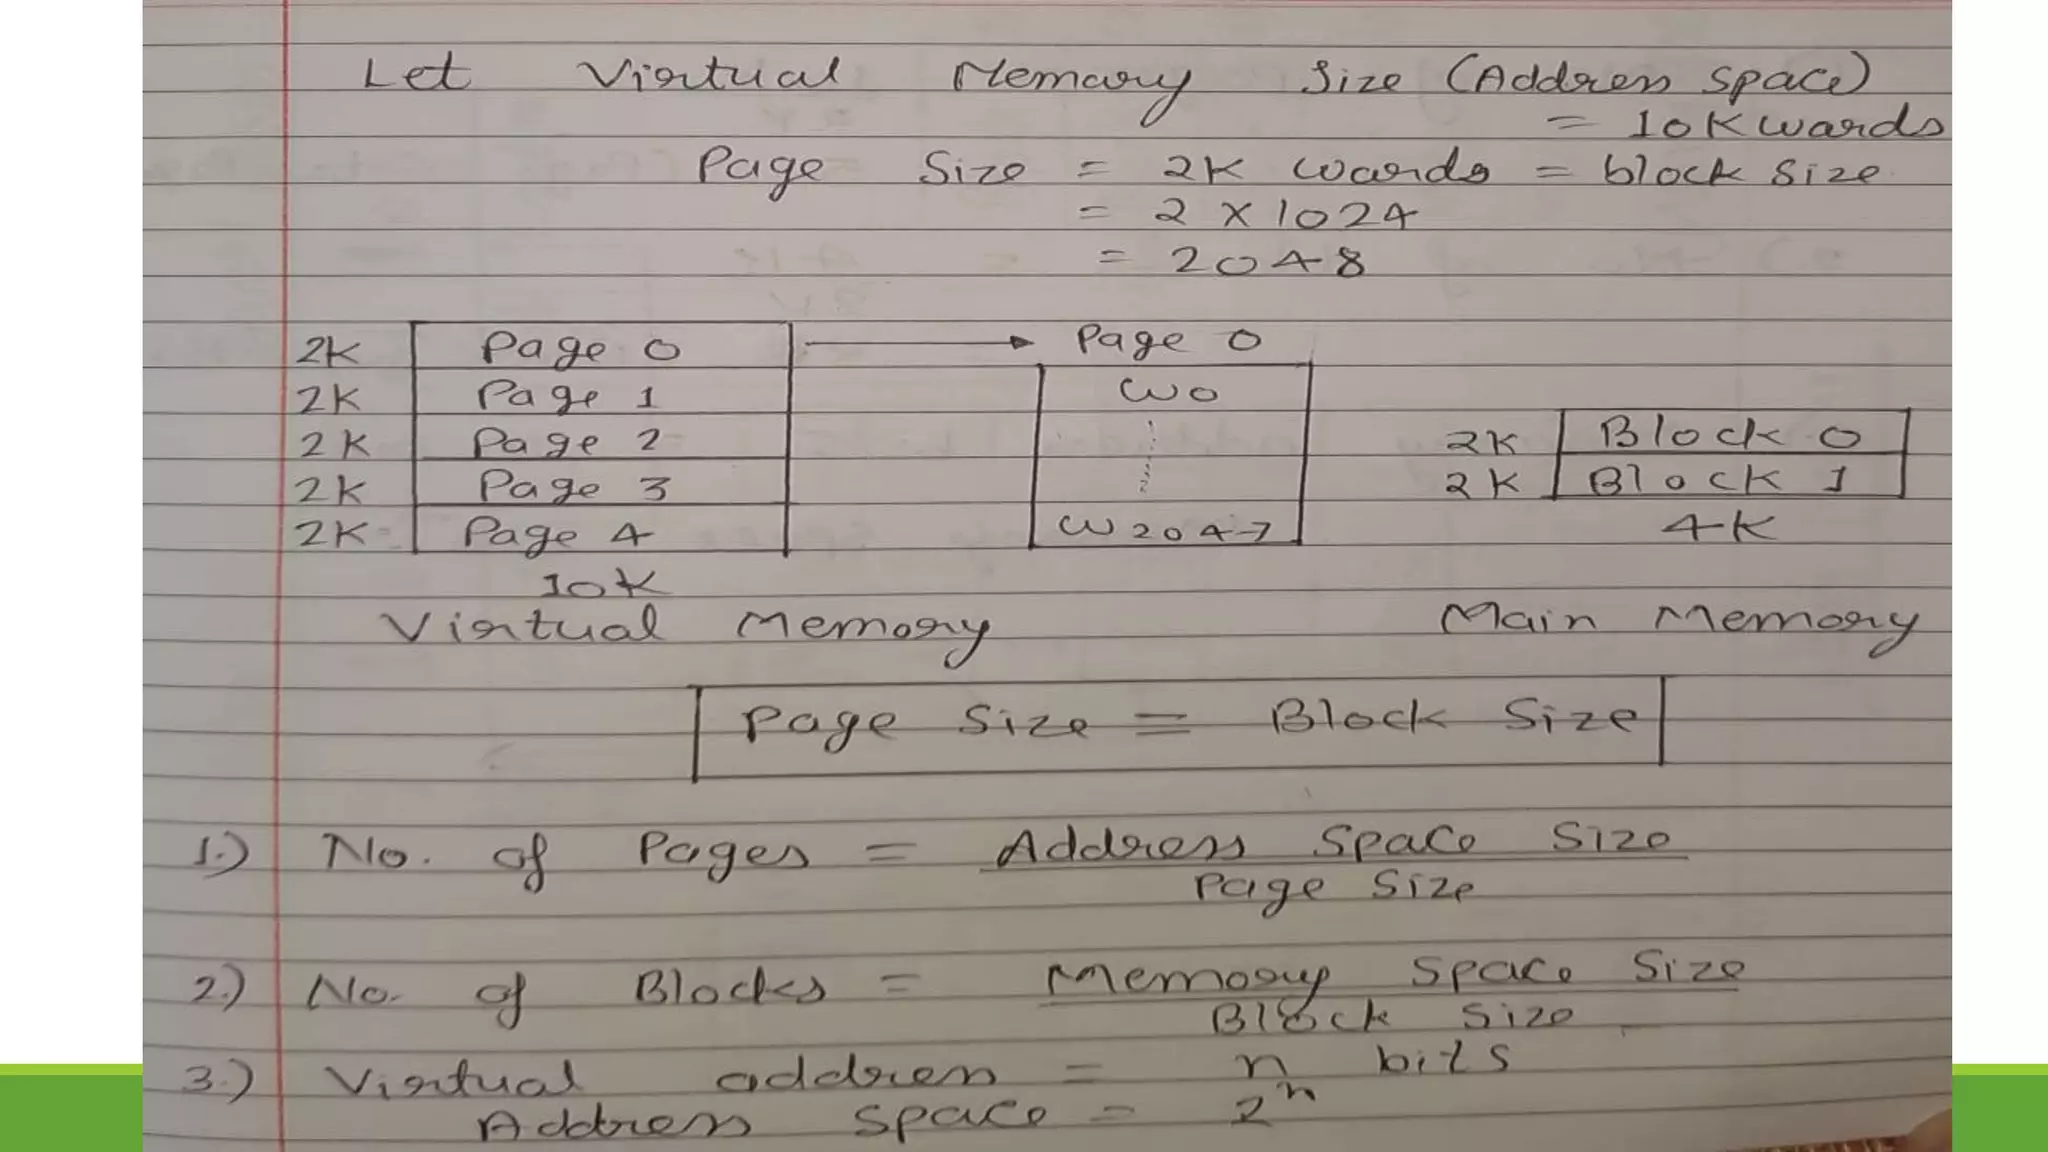 Let Virtual Memory Size (Address space)
= 10K words
Page Size = 2K words = block size
= 2 X 1024
= 2048
2K Page 0 Page 0
2K Page 1 W0
2K Page 2 2K Block 0
2K Page 3 2K Block 1
2K Page 4 W2047 4K
10K
Virtual Memory Main Memory
Page Size = Block Size
1.) No. of Pages = Address Space Size
Page Size
2.) No. of Blocks = Memory Space Size
Block Size
3.) Virtual address = n bits
Address space = 2^n